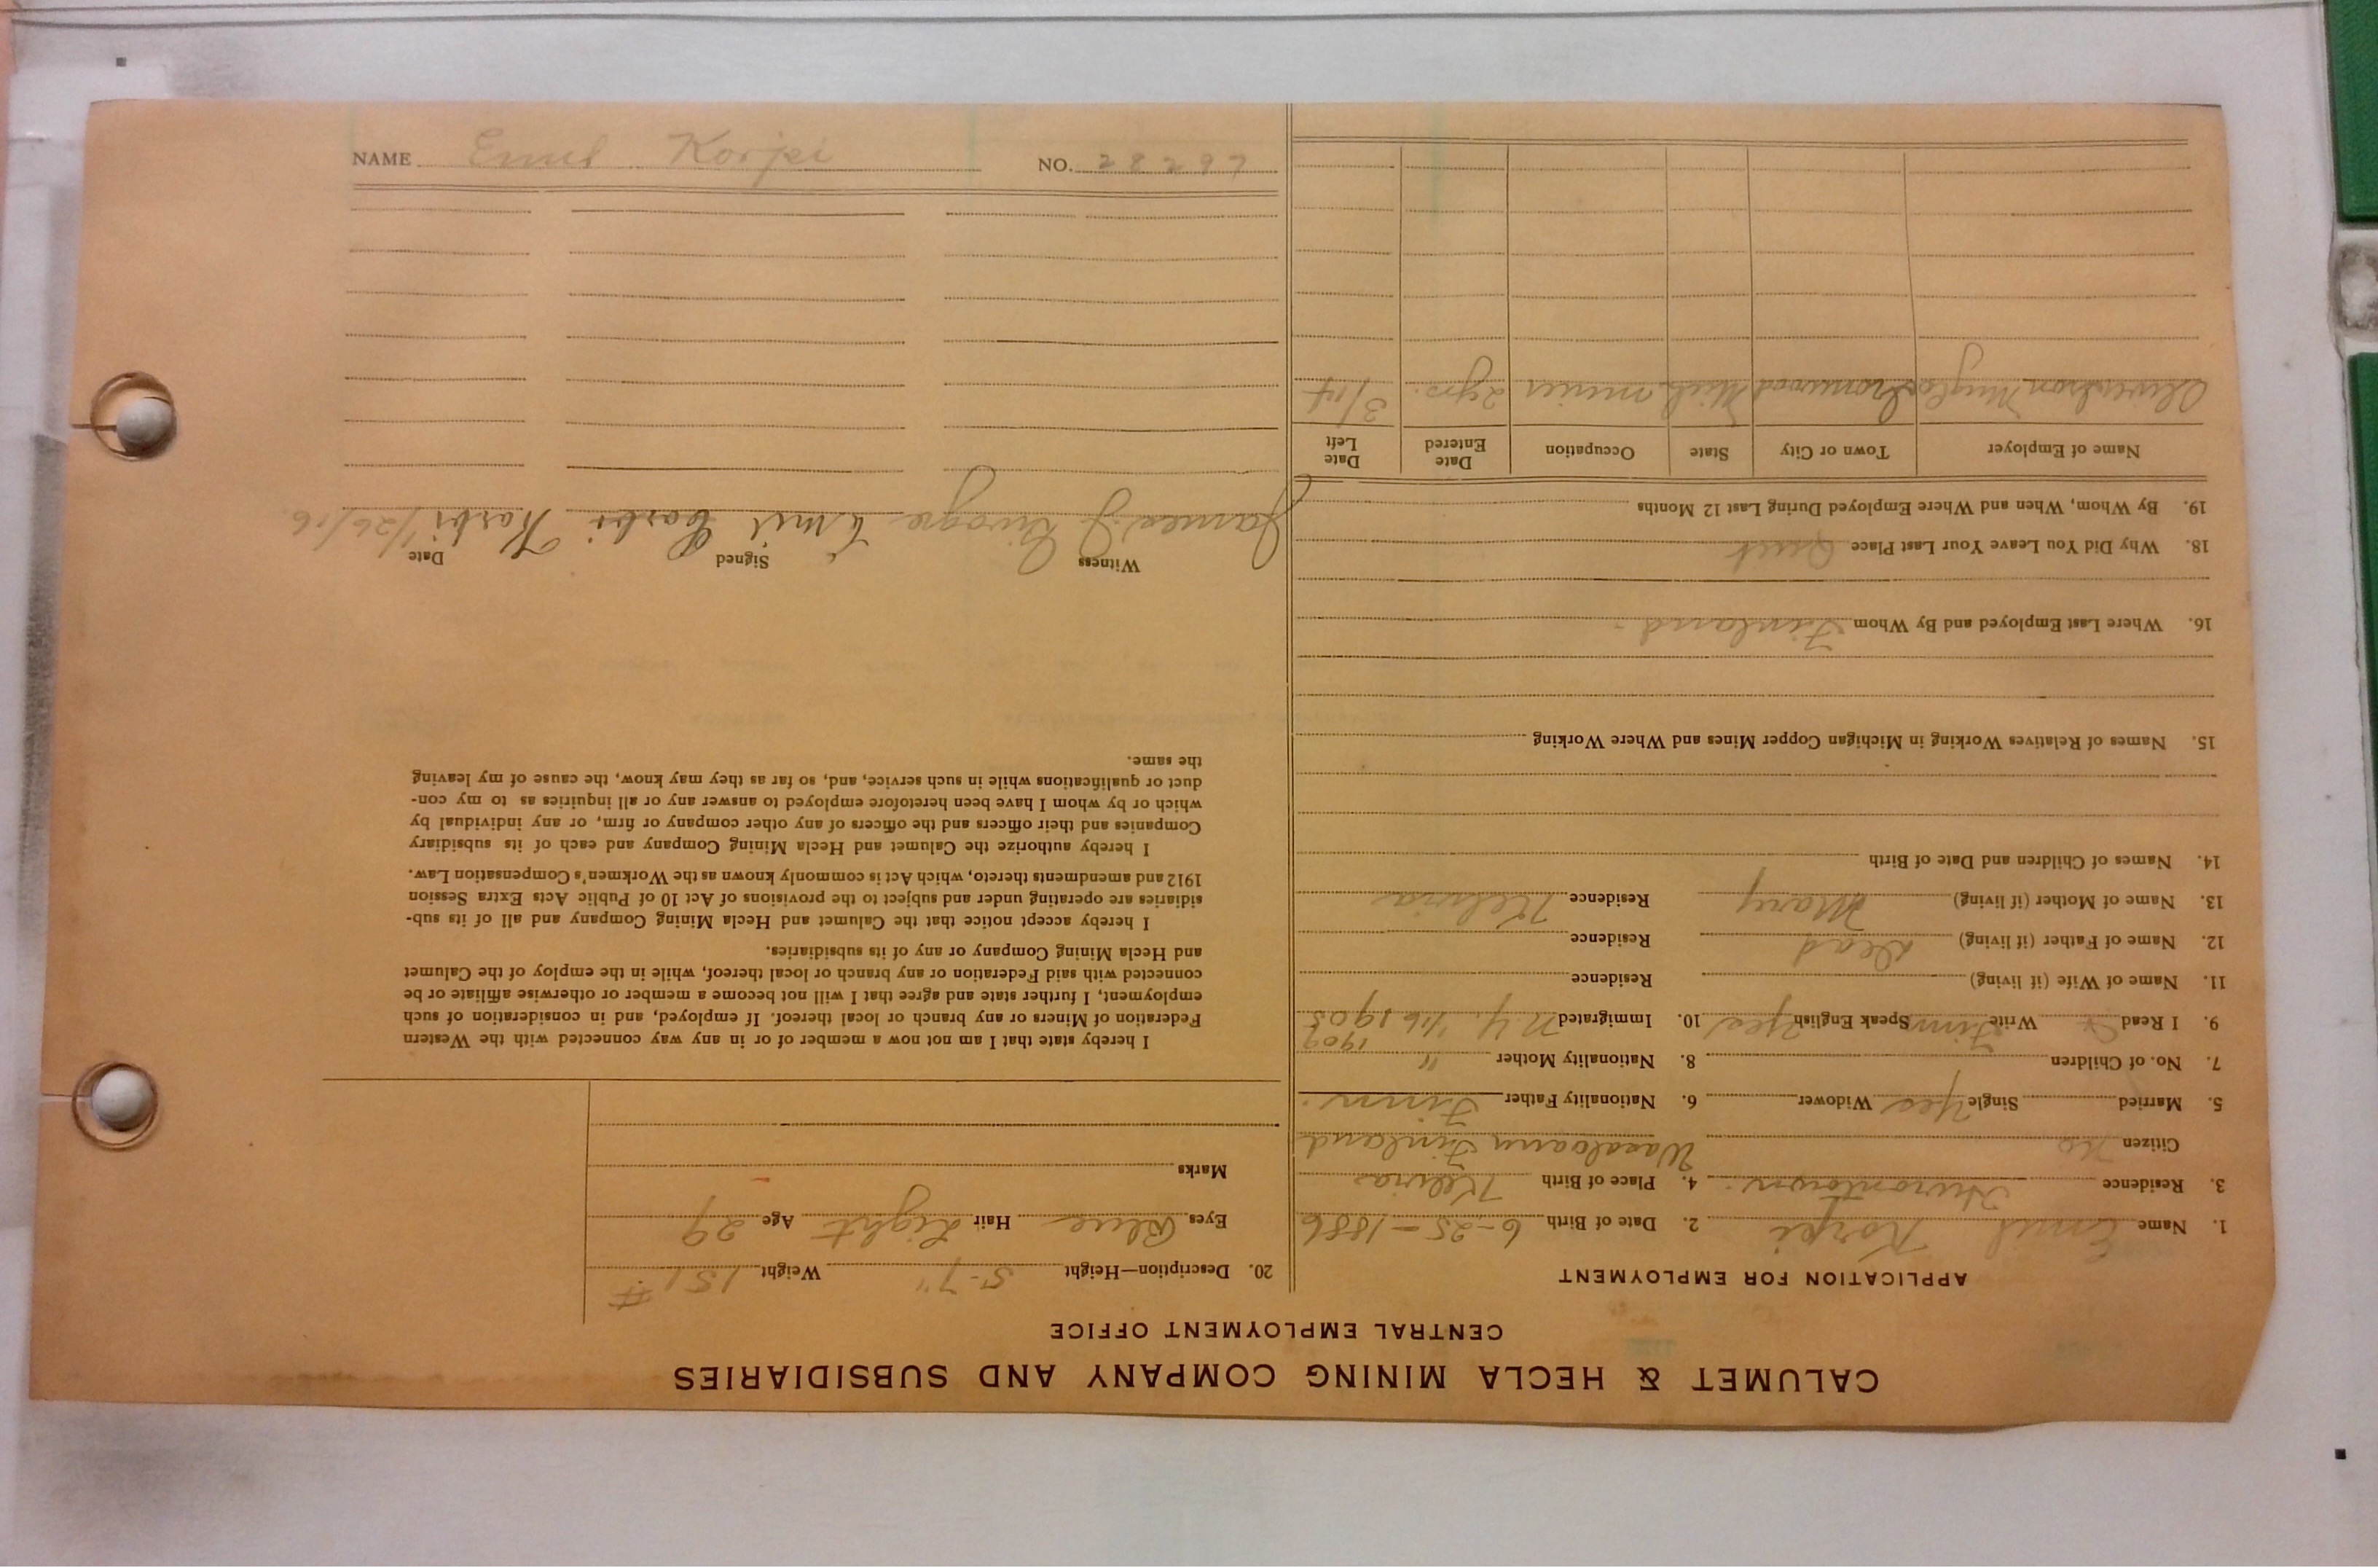 CALUMET & HECLA MINING COMPANY AND SUBSIDIARIES
CENTRAL EMPLOYMENT OFFICE
APPLICATION FOR EMPLOYMENT
1. Name Emil Korpi 2. Date of Birth 6-25-1886
3. Residence Hurontown 4. Place of Birth Kelvia
Citizen No Finland
5. Married Single Yes Widower 6. Nationality Father Finn
7. No. of Children 8. Nationality Mother "
1909
9. I Read Write Finn Speak English Yes 10. Immigrated N.Y. 1/16 1905
11. Name of Wife (if living) Residence
12. Name of Father (if living) Dead Residence
13. Name of Mother (if living) Mary Residence Kelvia
14. Names of Children and Date of Birth
15. Names of Relatives Working in Michigan Copper Mines and Where Working
16. Where Last Employed and By Whom Finland
18. Why Did You Leave Your Last Place Quit
19. By Whom, When and Where Employed During Last 12 Months
Name of Employer Town or City State Occupation Date Entered Date Left
Ironwood Mich miner 2 yrs. 3/14
20. Description—Height 5-7" Weight 151 #
Eyes Blue Hair Light Age 29
Marks
I hereby state that I am not now a member of or in any way connected with the Western
Federation of Miners or any branch or local thereof. If employed, and in consideration of such
employment, I further state and agree that I will not become a member or otherwise affiliate or be
connected with said Federation or any branch or local thereof, while in the employ of the Calumet
and Hecla Mining Company or any of its subsidiaries.
I hereby accept notice that the Calumet and Hecla Mining Company and all of its sub-
sidiaries are operating under and subject to the provisions of Act 10 of Public Acts Extra Session
1912 and amendments thereto, which Act is commonly known as the Workmen's Compensation Law.
I hereby authorize the Calumet and Hecla Mining Company and each of its subsidiary
Companies and their officers and the officers of any other company or firm, or any individual by
which or by whom I have been heretofore employed to answer any or all inquiries as to my con-
duct or qualifications while in such service, and, so far as they may know, the cause of my leaving
the same.
Witness Signed Date
James J Emil Carbi Karbi 1/26/16.
NAME Emil Korpi NO. 28297